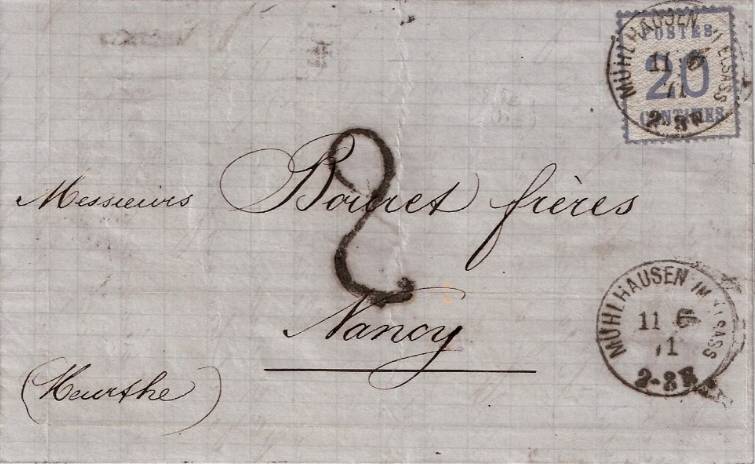 MÜHLHAUSEN I/ ELSASS
11 6
71
POSTES
20
CENTIMES
2
Messieurs Bouret frères
Nancy
(Meurthe)
MÜHLHAUSEN IM ELSASS
11 6
71
2-3 N